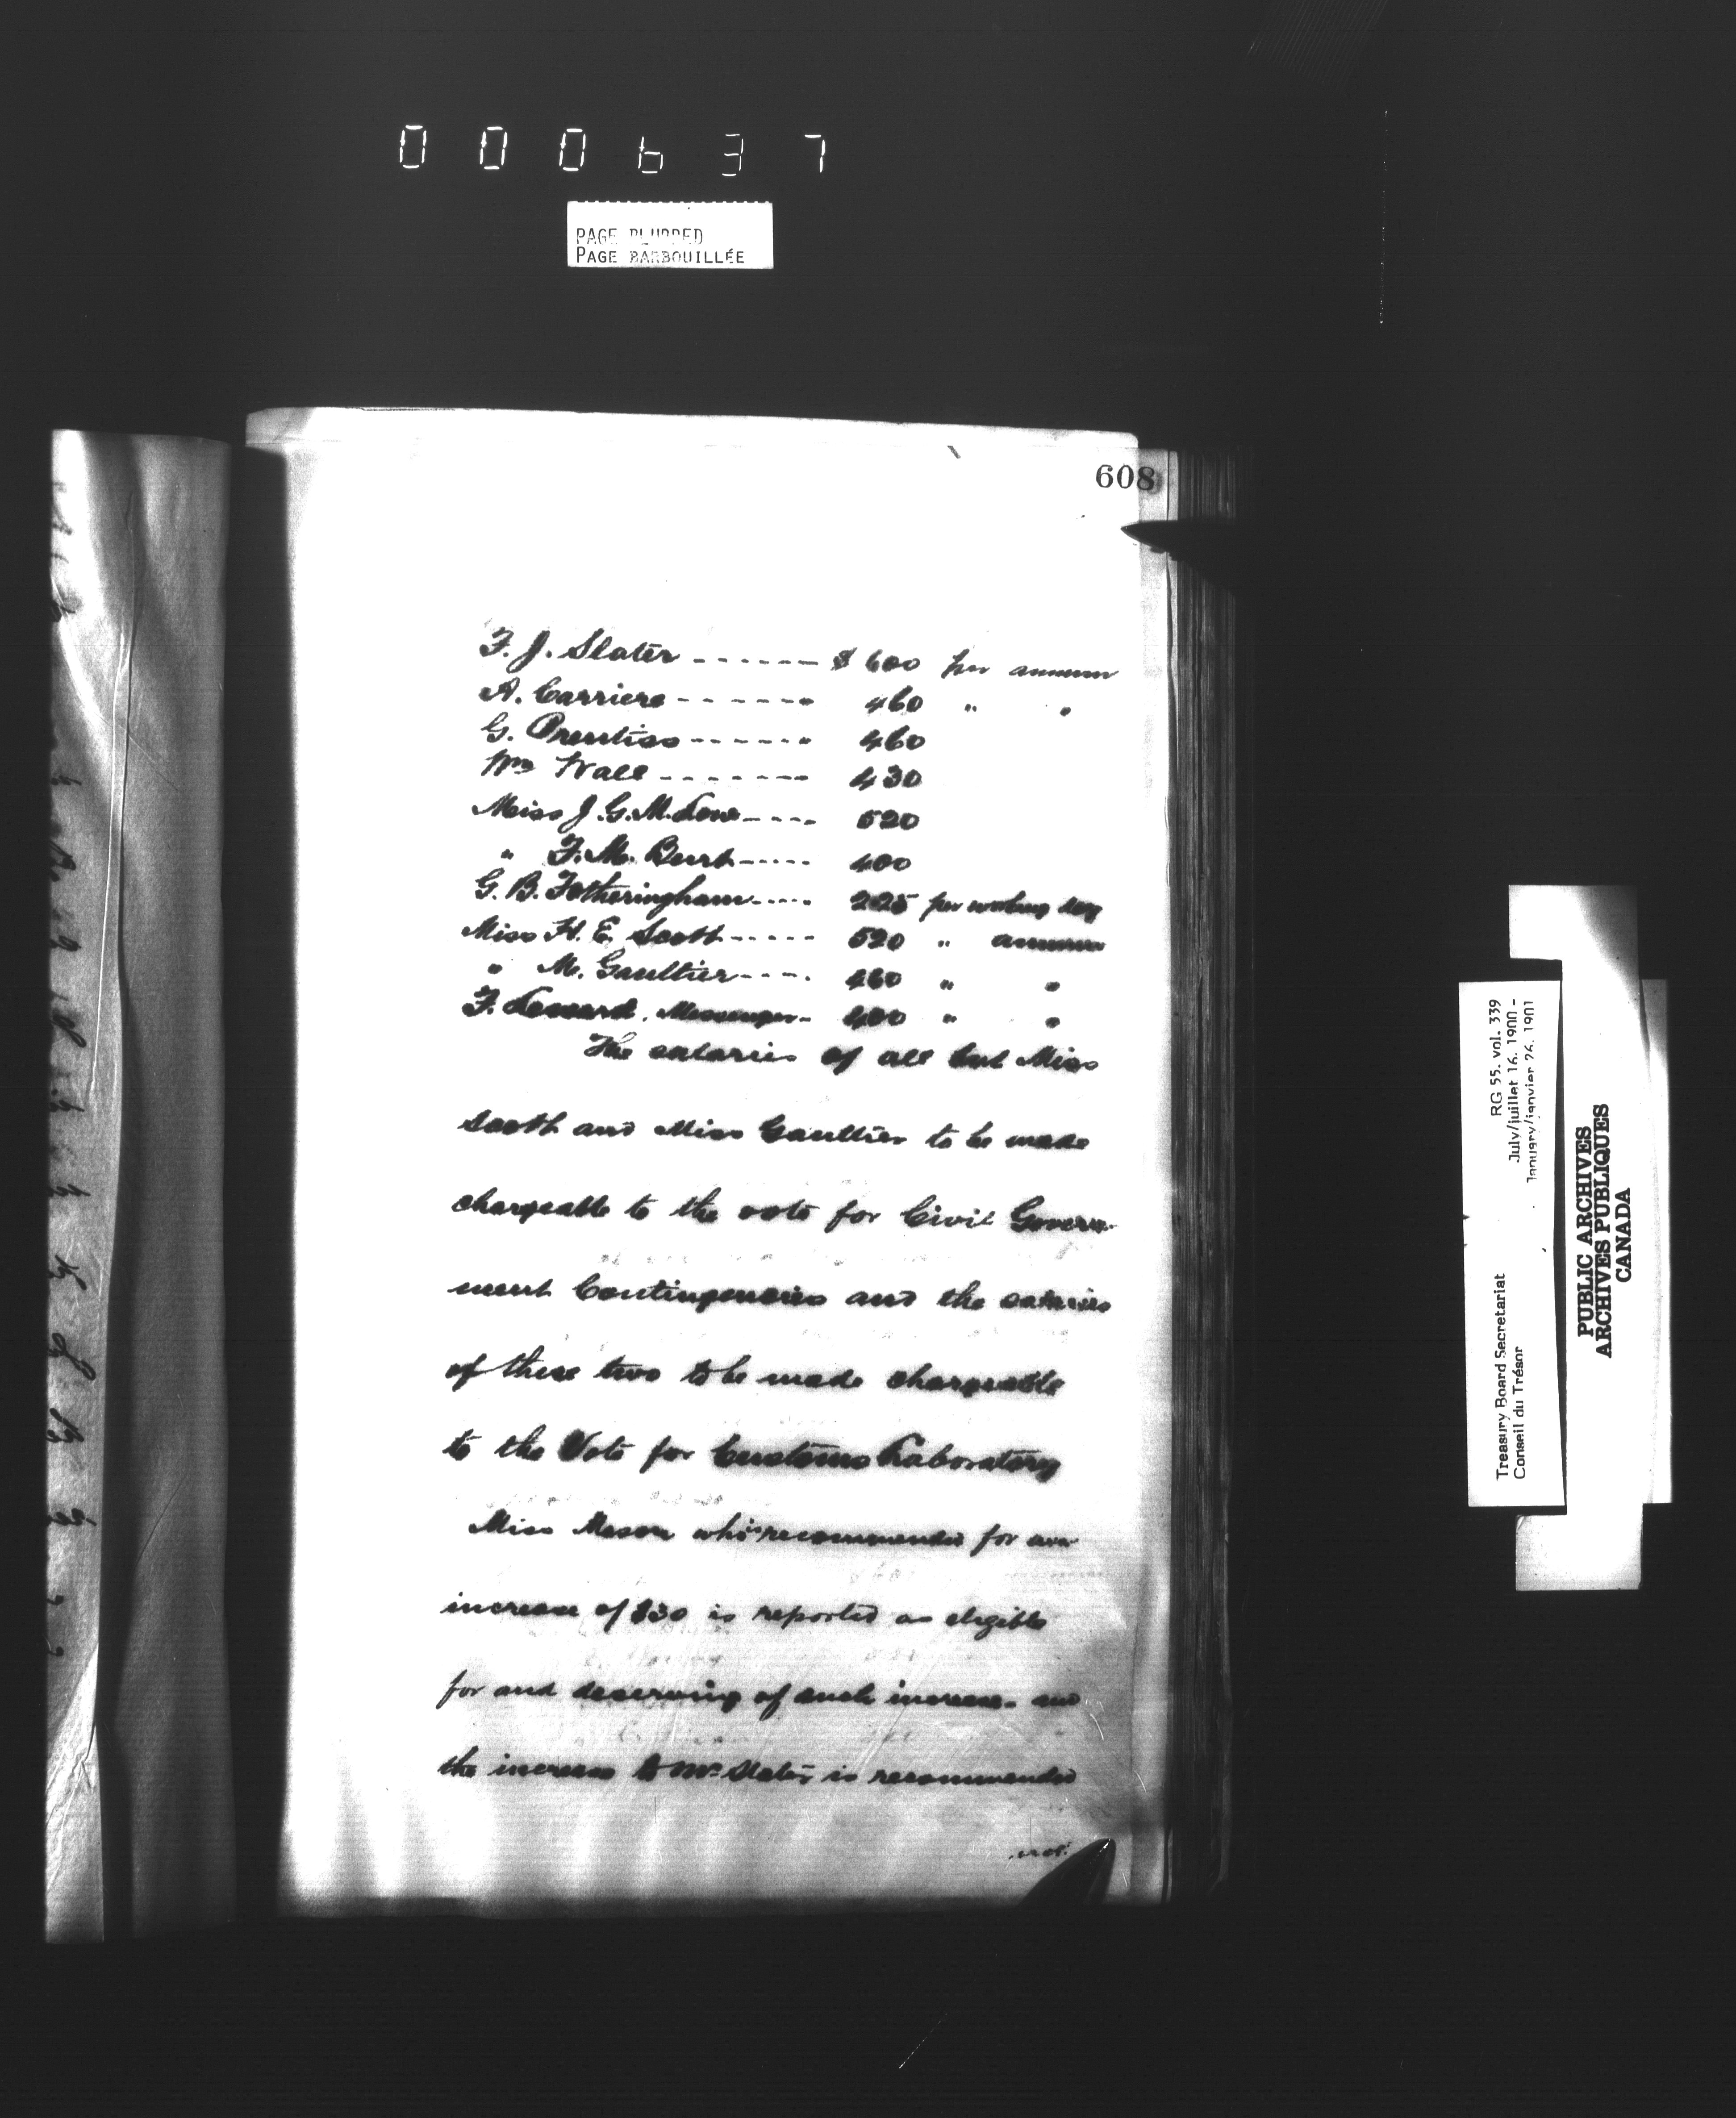 000637
PAGE BLURRED
PAGE BARBOUILLÉE
608
F. J. Slater ------ $ 600 per annum
A. Carriere ------ 460 " "
G. Prentiss ------ 460
Wm Wall ------ 430
Miss J. G. M. Low ---- 520
" F. M. Burt ----- 400
G. B. Fotheringham ----- 225 per working day
Miss H. E. Scott ----- 520 " annum
" M. Gaultier ---- 460 " "
F. Messenger - 400 " "
The salaries of all but Miss
Scott and Miss Gaultier to be made
chargeable to the vote for Civil Govern-
ment Contingencies and the salaries
of these two to be made chargeable
to the Vote for Customs Laboratory
Miss Mason who is recommended for an
increase of $30 is reported as eligible
for and deserving of such increase - and
the increase to Mr. Slater is recommended
not.
RG 55. vol. 339
July/juillet 16, 1900 -
January/janvier 26, 1901
Treasury Board Secretariat
Conseil du Trésor
PUBLIC ARCHIVES
ARCHIVES PUBLIQUES
CANADA